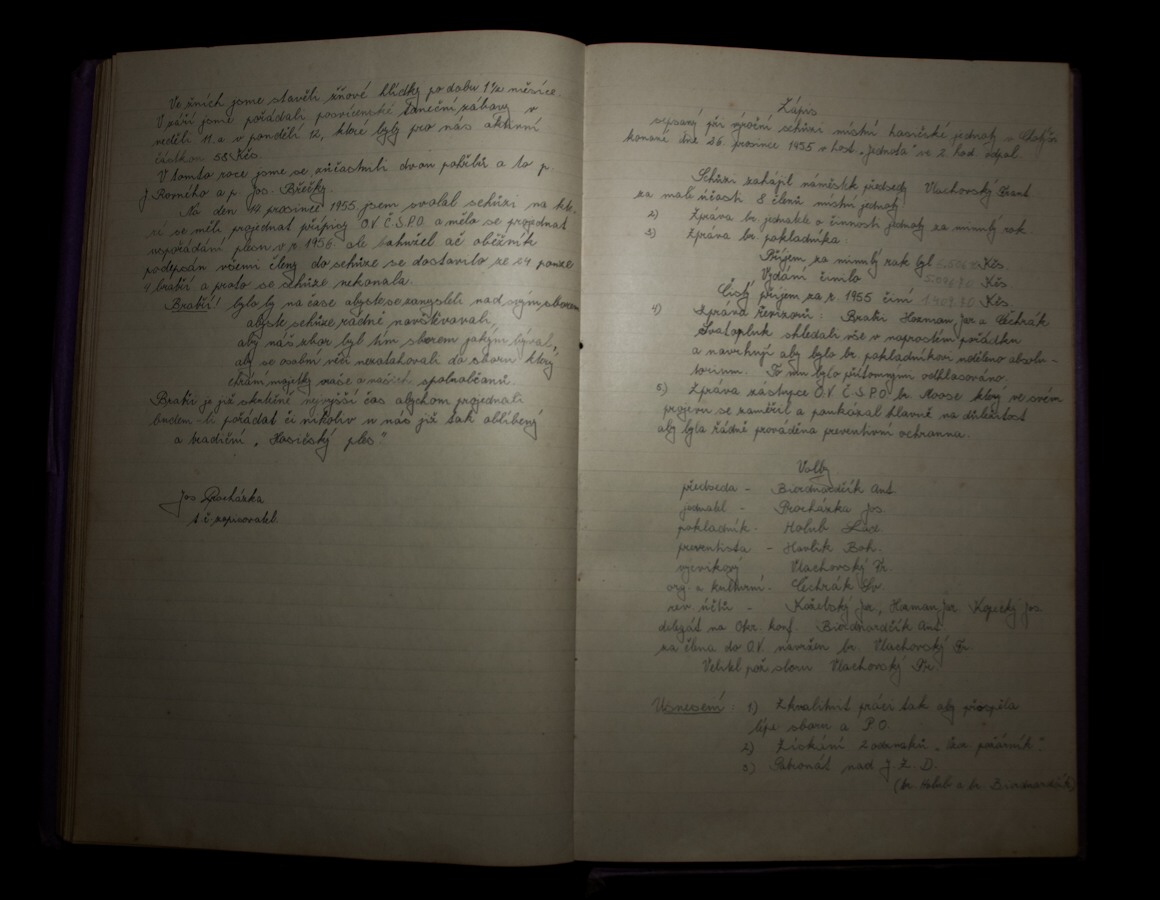 Ve žních jsme stavěli žňové hlídky po dobu 1½ měsíce.
V září jsme pořádali posvícenské taneční zábavy v
neděli 11. a v pondělí 12, které byly pro nás aktivní
částkou 58 Kčs.
V tomto roce jsme se zúčastnili dvou pohřbů a to p.
J. Romého a p. Jos. Břečky.
Na den 17 prosince 1955 jsem svolal schůzi na kte-
ré se měli projednat přípisy O.V. Č.S.P.O. a mělo se projednat
uspořádání plesu v r. 1956. ale bohužel ač oběžník
podepsán všemi členy do schůze se dostavilo ze 24 pouze
4 bratři a proto se schůze nekonala.
Bratři! bylo by na čase abyste se zamysleli nad svým sborem
abyste schůze řádně navštěvovali,
aby náš sbor byl tím sborem jakým býval,
aby se osobní věci nezatahovali do sboru který
chrání majetky vaše a vašich spoluobčanů.
Bratři je již skutečně nejvyšší čas abychom projednali
budem-li pořádat či nikoliv u nás již tak oblíbený
a tradiční „Hasičský ples"
Jos Procházka
t.č. zapisovatel.
Zápis
sepsaný při výroční schůzi místní hasičské jednoty
konané dne 26. prosince 1955 v host. „Jednota" ve 2 hod. odpol.
Schůzi zahájil náměstek předsedy Vlachovský Frant
za malé účasti 8 členů místní jednoty
2) Zpráva br. jednatele o činnosti jednoty za minulý rok
3) Zpráva br. pokladníka:
Příjem za minulý rok byl Kčs.
Vydání činilo Kčs.
Čistý příjem za r. 1955 činí 1.409.30 Kčs.
4) Zpráva revizorů: Bratři Herman Jar a Čechrák
Svatopluk shledali vše v naprostém pořádku
a navrhují aby bylo br. pokladníkovi uděleno absolu-
torium. To mu bylo přítomnými odhlasováno.
5) Zpráva zástupce O.V. Č.S.P.O. br. který ve svém
projevu se zaměřil a poukázal hlavně na důležitost
aby byla řádně prováděna preventivní ochranna.
Volby
předseda - Ant.
jednatel - Procházka Jos.
pokladník - Holub
preventista - Havlík Boh.
výcvikový Vlachovský Fr.
org. a kulturní - Čechrák Sv.
rev. účtů - Jar, Herman Jar Kopecký Jos.
delegát na Okr. konf. Ant.
za člena do O.V. navržen br. Vlachovský Fr.
Velitel pož. sboru Vlachovský Fr.
Usnesení: 1) Zkvalitnit práci tak aby prospěla
lépe sboru a P.O.
2) Získání 2 odznaků „Vzor. požárník".
3) Patronát nad J.Z.D.
(br. Holub a br.